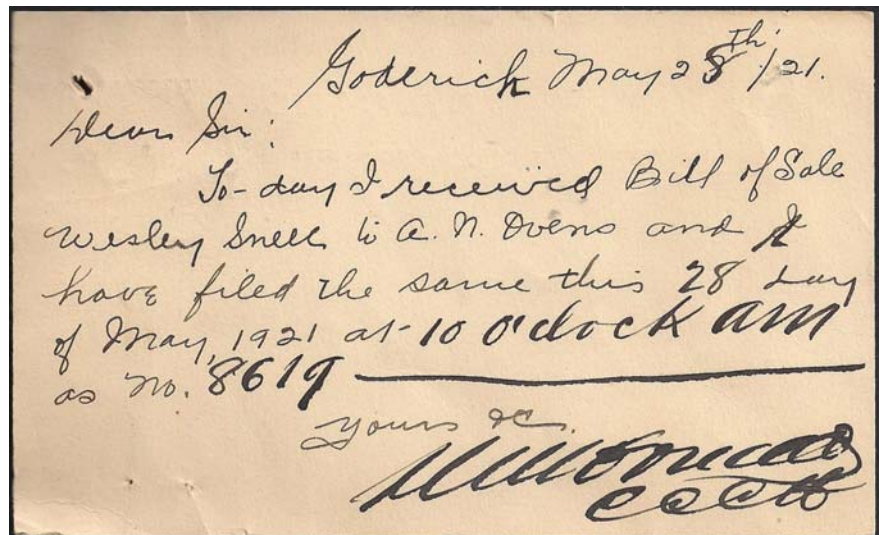 Goderich May 28th /21.
Dear Sir:
To-day I received Bill of Sale
Wesley Snell to A. N. Ovens and I
have filed the same this 28 day
of May, 1921 at 10 o'clock am
as No. 8619
Yours &c.